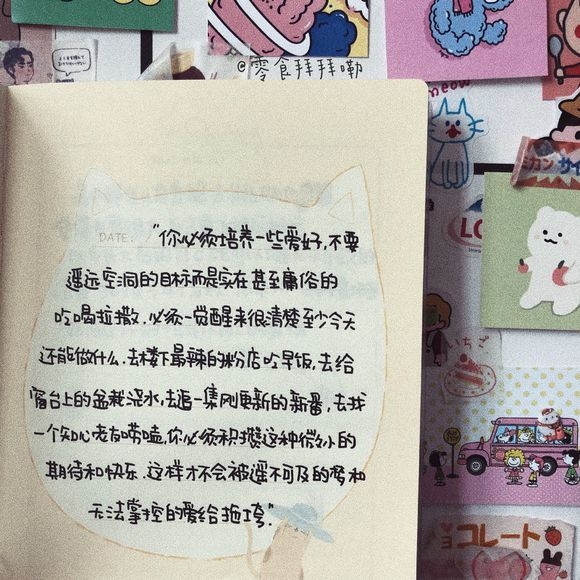 @零食拜拜嘞
meow
DATE:
"你必须培养一些爱好,不要
遥远空洞的目标而是实在甚至庸俗的
吃喝拉撒.必须一觉醒来很清楚至少今天
还能做什么.去楼下最辣的粉店吃早饭,去给
窗台上的盆栽浇水,去追一集刚更新的新番,去找
一个知心老友唠嗑,你必须积攒这种微小的
期待和快乐.这样才不会被遥不可及的梦和
无法掌控的爱给拖垮."
ミカン サイ
いちご
チョコレート